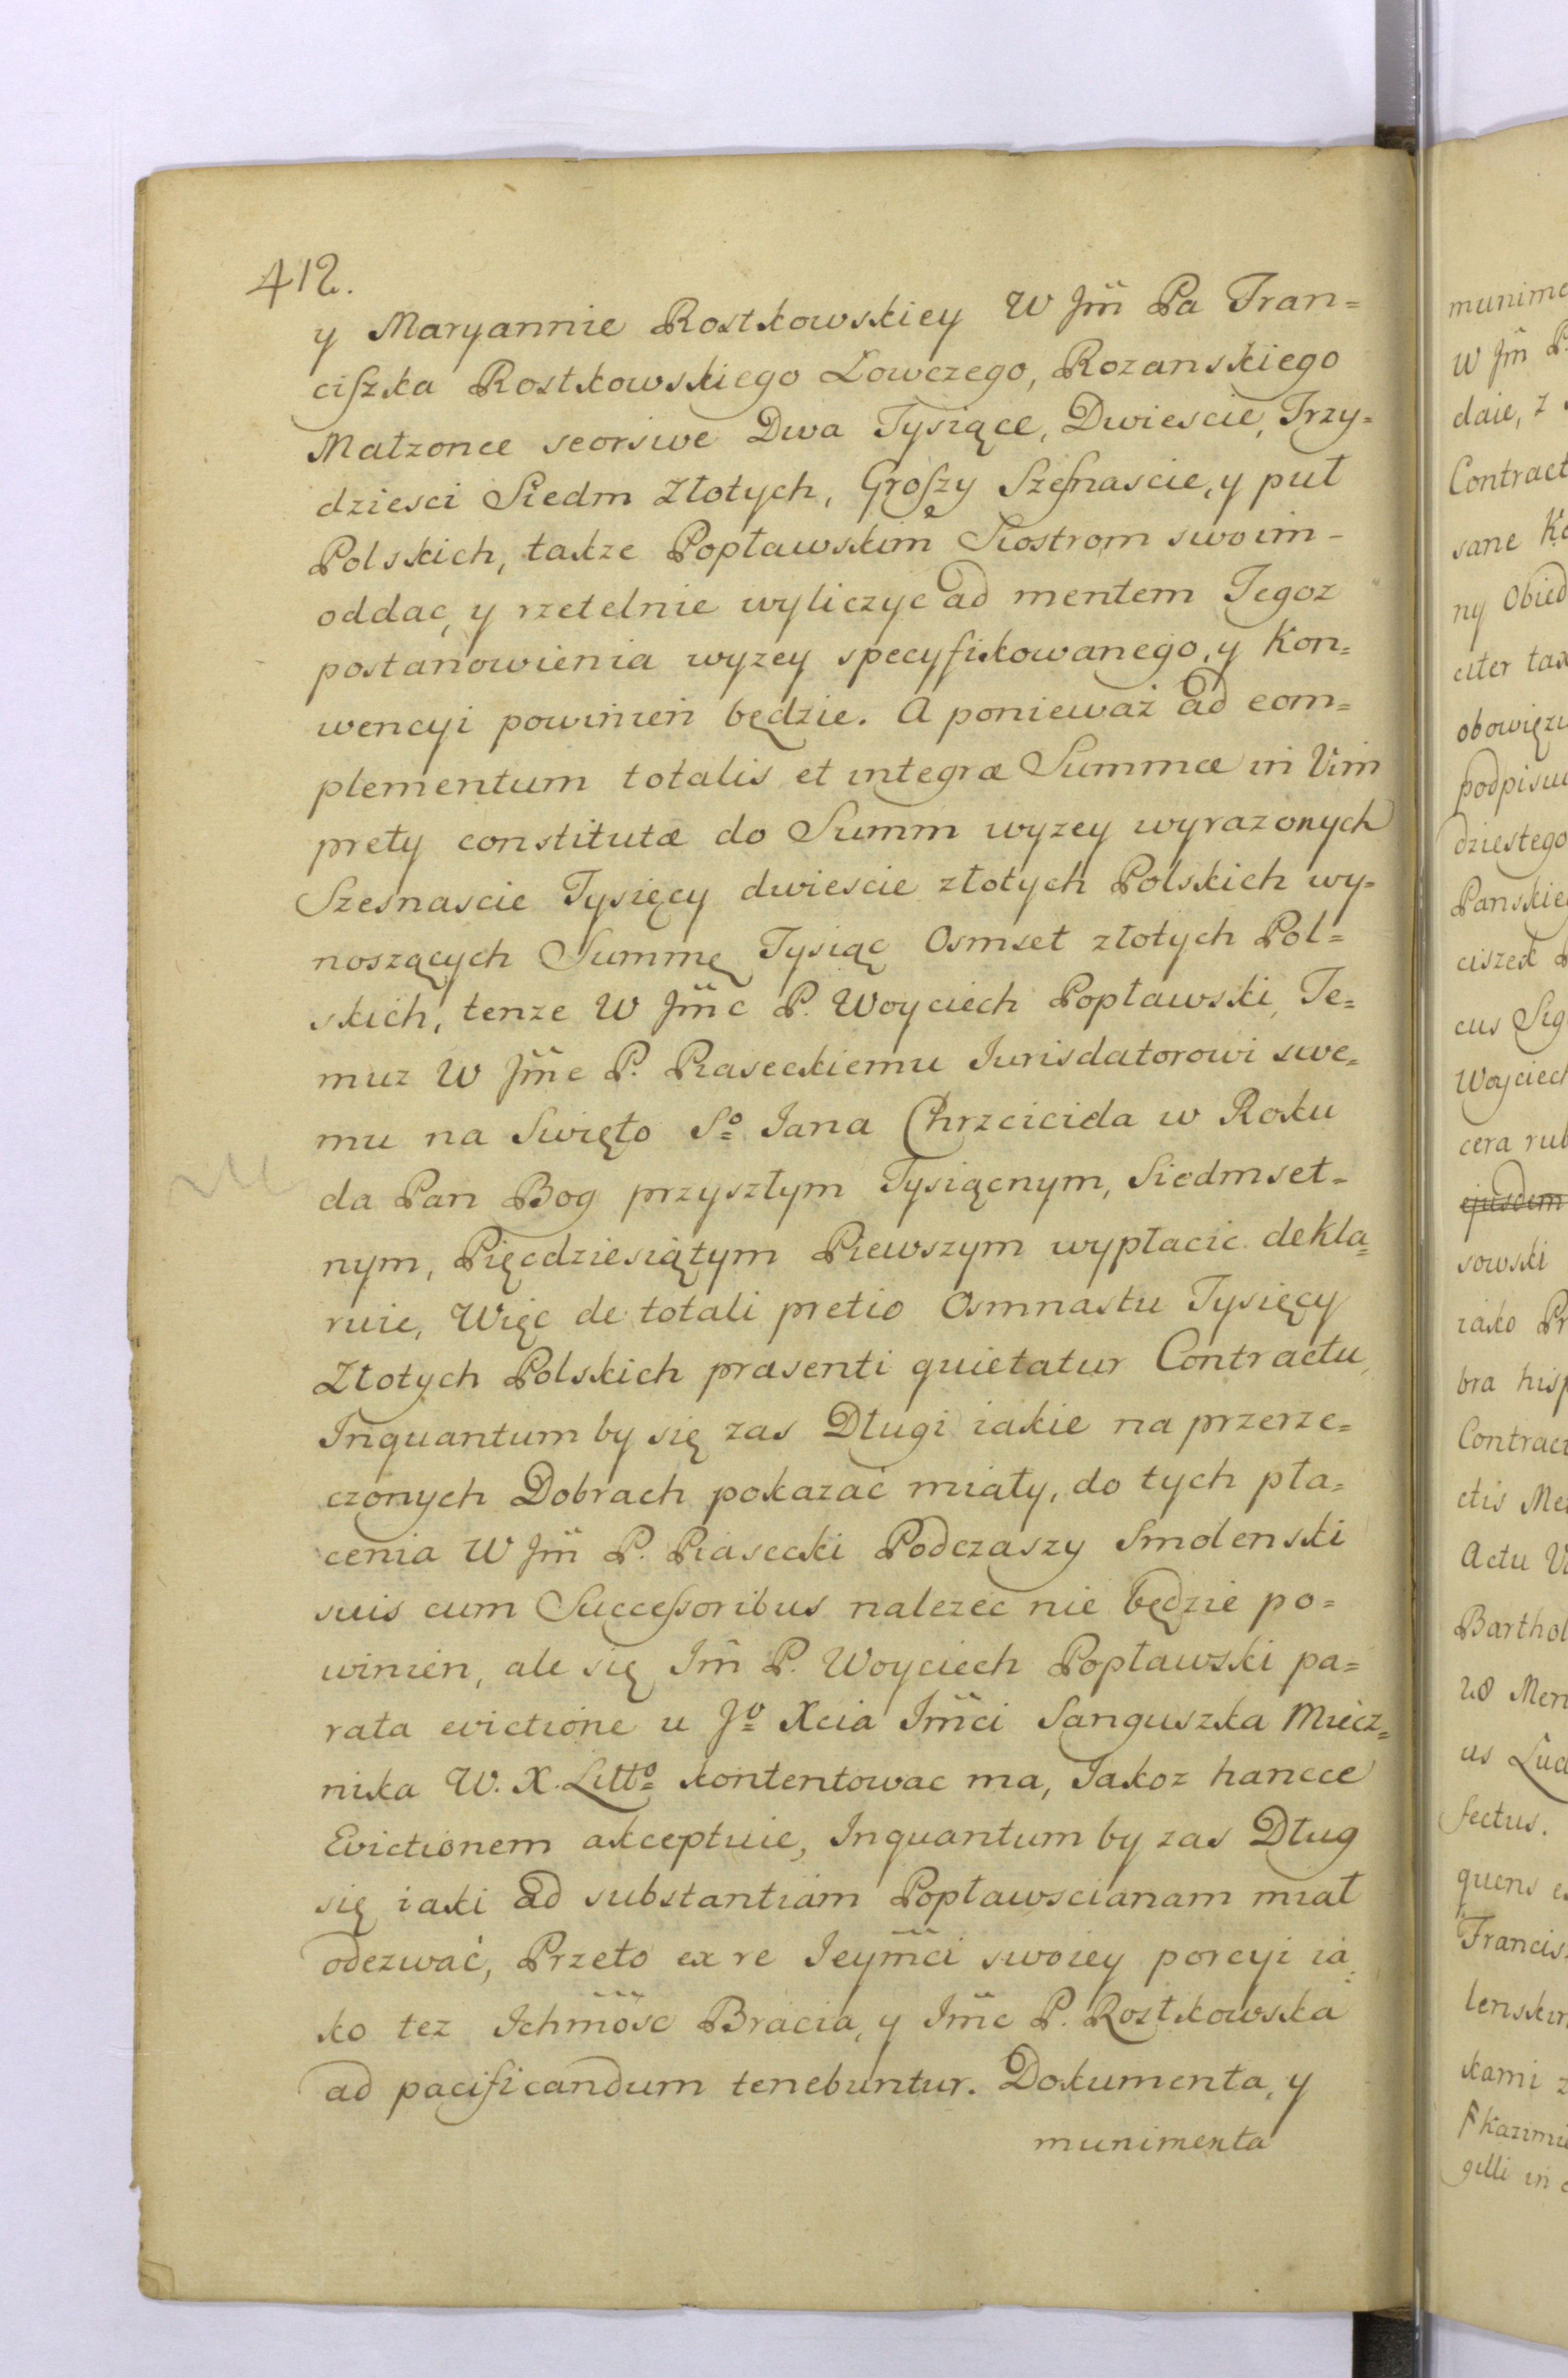 412.
y Maryannie Rostkowskiey W Jm̃ Pa Fran=
ciszka Rostkowskiego Łowczego, Rozanskiego
Małzonce seorsive Dwa Tysiące, Dwiescie, Trzy=
dziesci Siedm Złotych, Groszy Szesnascie, y puł
Polskich, takze Popławskim Siostrom swoim -
oddac, y rzetelnie wyliczyc ad mentem Tegoz
postanowienia wyzey specyfikowanego, y Kon=
wencyi powinien będzie. A ponieważ ad com=
plementum totalis et integræ Summæ in Vim
prety constitutæ do Summ wyzey wyrazonych
Szesnascie Tysięcy dwiescie złotych Polskich wy=
noszących Summę Tysiąc Osmset złotych Pol=
skich, tenze W Jm̃c P. Woyciech Popławski, Te=
muz W Jm̃c P. Piaseckiemu Iurisdatorowi swe=
mu na Swięto Sº Iana Chrzciciela w Roku
da Pan Bog przyszłym Tysiącnym, Siedmset=
nym, Pięcdziesiątym Piewszym wypłacic dekla=
ruie, Więc de totali pretio Osmnastu Tysięcy
Złotych Polskich præsenti quietatur Contractu,
Inquantum by się zas Długi iakie na przerze=
czonych Dobrach pokazać miały, do tych pła=
cenia W Jm̃ P. Piasecki Podczaszy Smolenski
suis cum Successoribus nalezec nie będzie po=
winien, ale się Jm̃ P. Woyciech Popławski pa=
rata evictione u Jº Xcia Jm̃ci Sanguszka Miecz=
nika W. X. Littº kontentowac ma, Jakoz hancce
Evictionem akceptuie, Inquantum by zas Dług
się iaki ad substantiam Popławscianam miał
odezwać, Przeto ex re Ieym̃ci swoiey porcyi ia=
ko tez Ichm̃ośc Bracia, y Jm̃c P. Rostkowska
ad pacificandum tenebuntur. Dokumenta, y
munimenta
munime
W Jm̃ P.
daie, z
Contract
sane
ny Obied
citer tak
obowięzu
podpisu
dziestego
Panskie
ciszek
cus Sig
Woyciech
cera rub
ejusdem
sowski
iako Pr
bra hisp
Contract
ctis Me
Actu
Barthol
28 Men
us Luc
fectus.
quens e
Francis
lenskim
kami z
Kazimi
gilli in